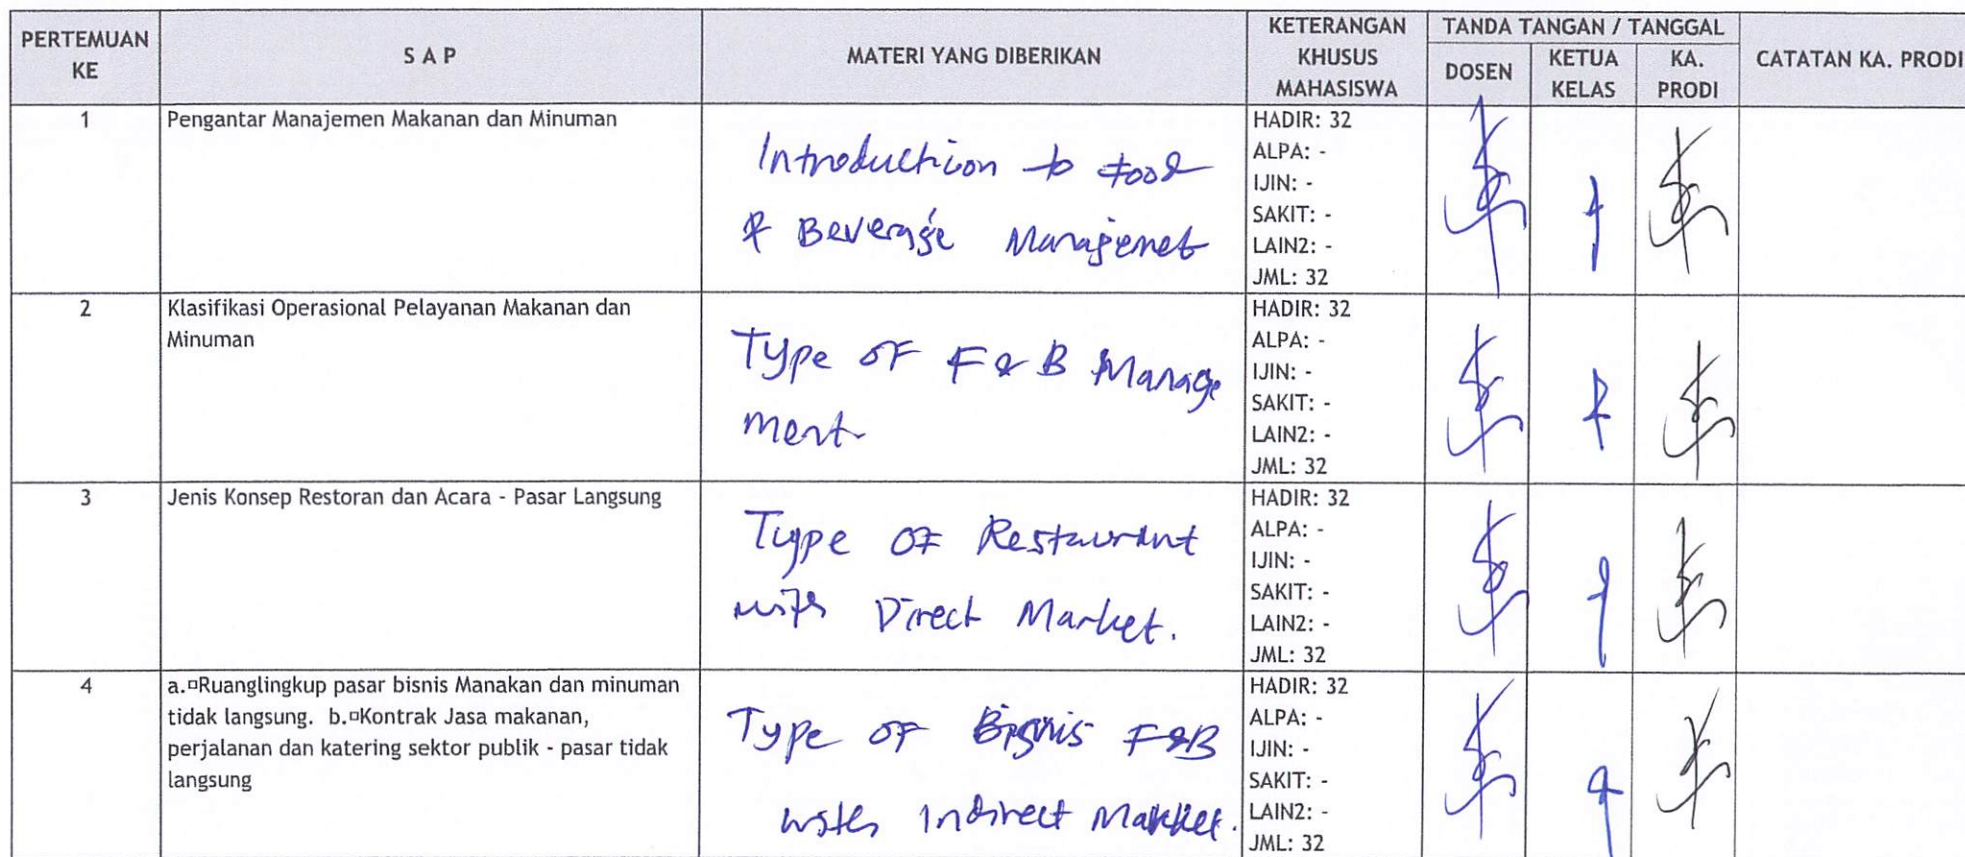 PERTEMUAN KE
S A P
MATERI YANG DIBERIKAN
KETERANGAN KHUSUS MAHASISWA
TANDA TANGAN / TANGGAL
DOSEN
KETUA KELAS
KA. PRODI
CATATAN KA. PRODI
1
Pengantar Manajemen Makanan dan Minuman
Introduction to Food
& Beverage Managemet
HADIR: 32
ALPA: -
IJIN: -
SAKIT: -
LAIN2: -
JML: 32
2
Klasifikasi Operasional Pelayanan Makanan dan
Minuman
Type OF F & B Manage
ment
HADIR: 32
ALPA: -
IJIN: -
SAKIT: -
LAIN2: -
JML: 32
3
Jenis Konsep Restoran dan Acara - Pasar Langsung
Type OF Restaurant
with Direct Market.
HADIR: 32
ALPA: -
IJIN: -
SAKIT: -
LAIN2: -
JML: 32
4
a.¤Ruanglingkup pasar bisnis Manakan dan minuman
tidak langsung. b.¤Kontrak Jasa makanan,
perjalanan dan katering sektor publik - pasar tidak
langsung
Type OF Bisnis F&B
with Indirect Market.
HADIR: 32
ALPA: -
IJIN: -
SAKIT: -
LAIN2: -
JML: 32